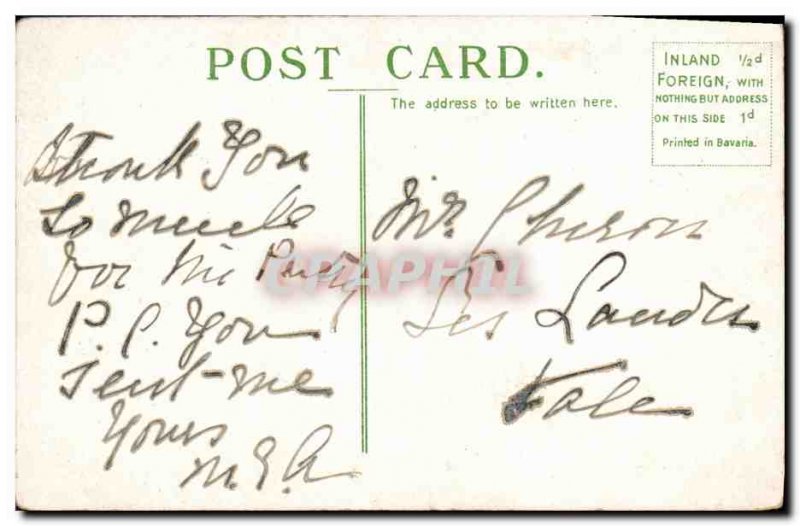 POST CARD.
The address to be written here.
INLAND ½d
FOREIGN, WITH
NOTHING BUT ADDRESS
ON THIS SIDE 1d
Printed in Bavaria.
Thank You
so much
for the Pretty
P.C. You
sent me
Yours
M.E.A
Mr.
Les Landes
Vale
CPAPHIL